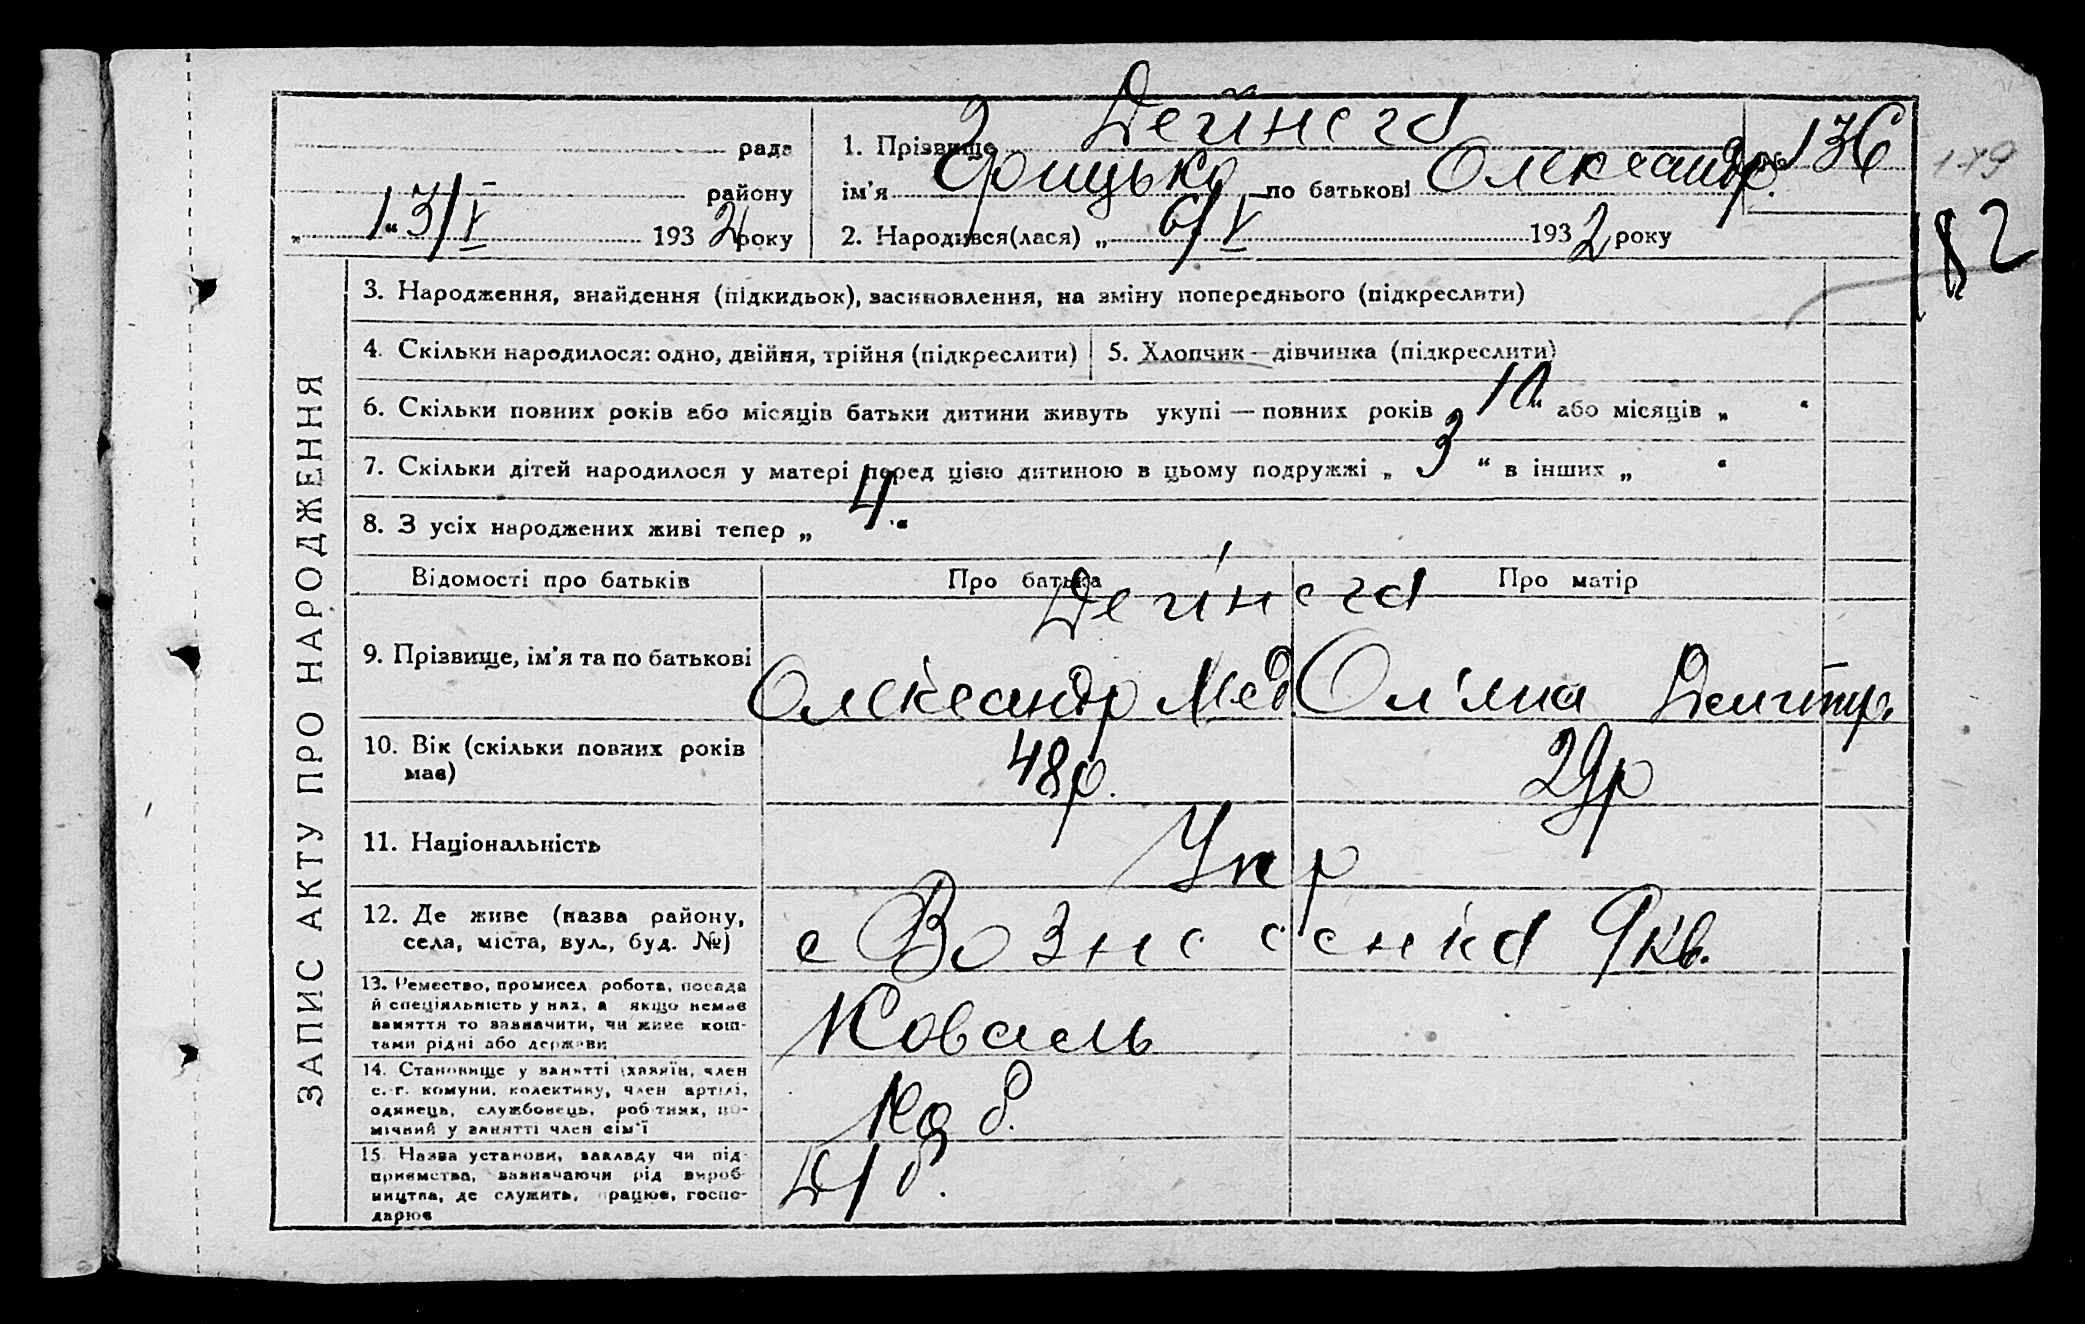 Дейнега
рада 1. Прізвище № 136
179
району ім'я Грицько по батькові Олександр.
„ 13/V “ 1932 року 2. Народився(лася) „ 6/V 1932 року
182
ЗАПИС АКТУ ПРО НАРОДЖЕННЯ
3. Народження, знайдення (підкидьок), засиновлення, на зміну попереднього (підкреслити)
4. Скільки народилося: одно, двійня, трійня (підкреслити) 5. Хлопчик—дівчинка (підкреслити)
6. Скільки повних років або місяців батьки дитини живуть укупі — повних років 10 “ або місяців „ “
7. Скільки дітей народилося у матері перед цією дитиною в цьому подружжі „ 3 “ в інших „ “
8. З усіх народжених живі тепер „ 4 “
Відомості про батьків Про батька Про матір
Дейнега
9. Прізвище, ім'я та по батькові Олександр Мед. Ол'яна Дмитр.
10. Вік (скільки повних років має) 48р. 29р
11. Національність Укр
12. Де живе (назва району,
села, міста, вул., буд. №) с Вознесенка 9 кв.
13. Ремество, промисел, робота, посада
й спеціяльність у них, а якщо немає
заняття то зазначити, чи живе кош-
тами рідні або держави
Коваль
14. Становище у занятті (хазяїн, член
с.-г. комуни, колективу, член артілі,
одинець, службовець, робітник, по-
мічний у занятті член сім'ї
15. Назва установи, закладу чи під-
приємства, зазначаючи рід вироб-
ництва, де служить, працює, госпо-
дарює